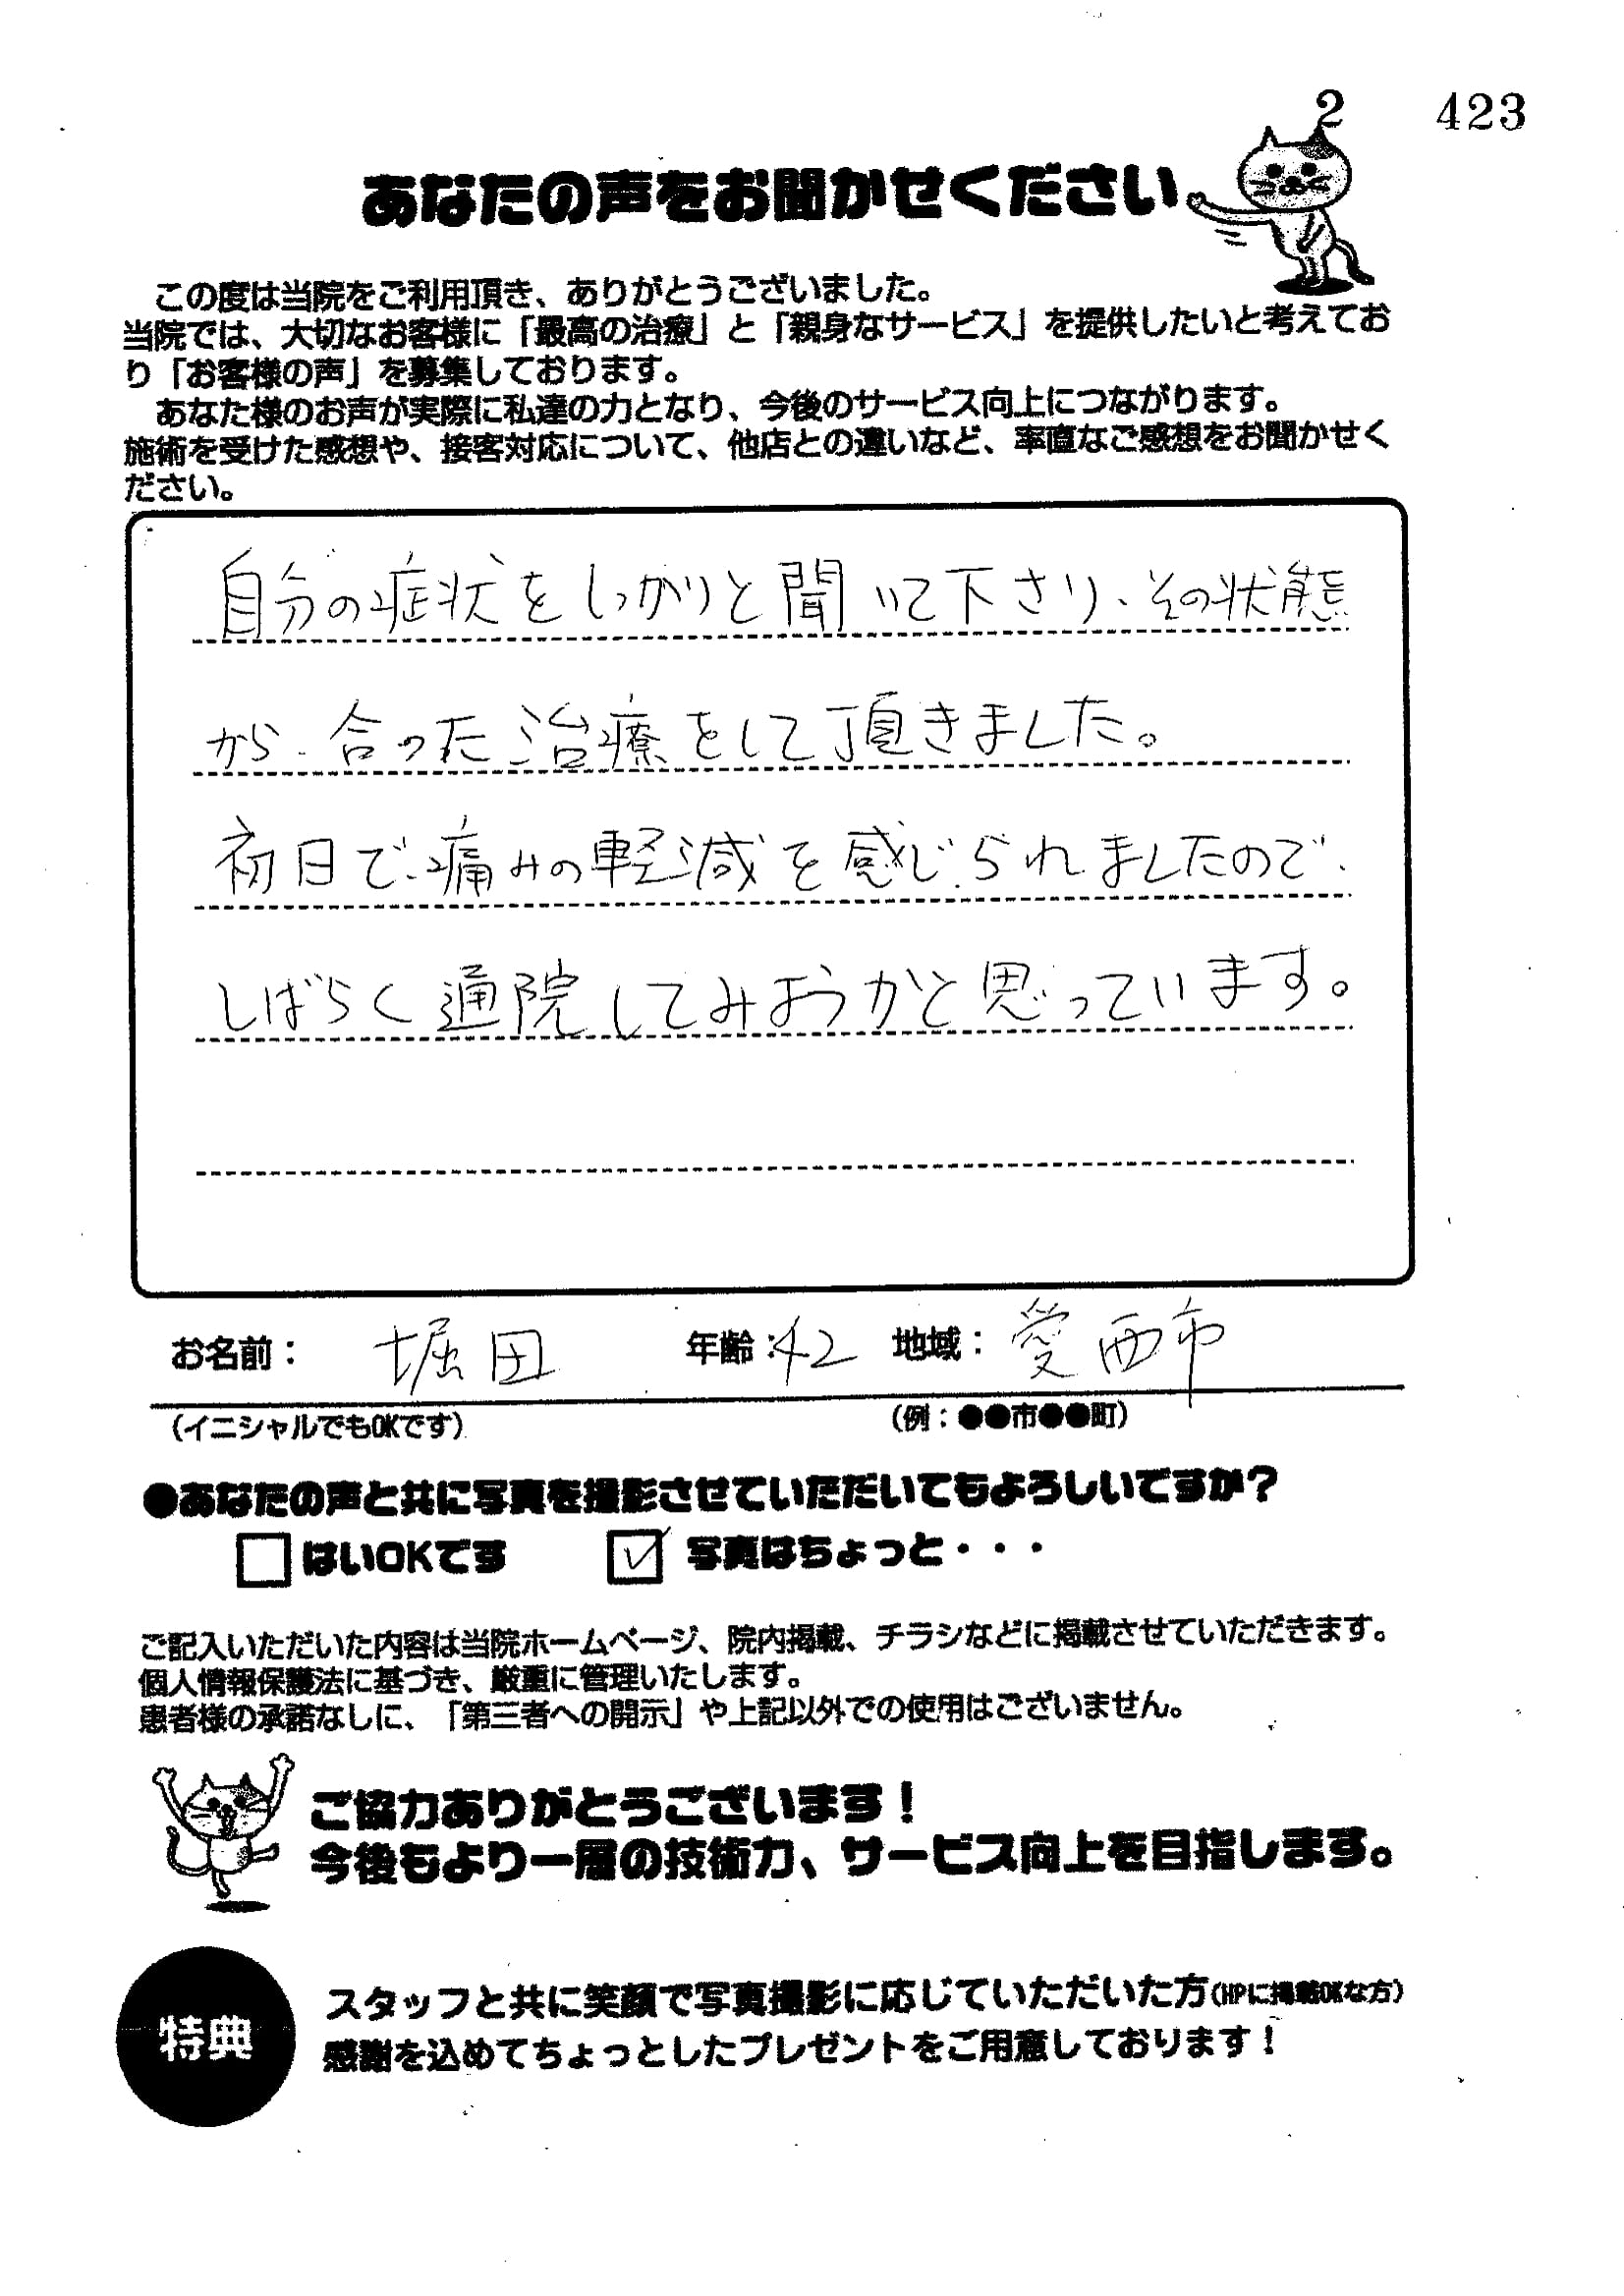 2 423
あなたの声をお聞かせください
この度は当院をご利用頂き、ありがとうございました。
当院では、大切なお客様に「最高の治療」と「親身なサービス」を提供したいと考えてお
り「お客様の声」を募集しております。
あなた様のお声が実際に私達の力となり、今後のサービス向上につながります。
施術を受けた感想や、接客対応について、他店との違いなど、率直なご感想をお聞かせく
ださい。
自分の症状をしっかりと聞いて下さり、その状態
から、合った治療をして頂きました。
初日で、痛みの軽減を感じられましたので、
しばらく通院してみようかと思っています。
お名前： 堀田 年齢：42 地域：愛西市
（イニシャルでもOKです） （例：●●市●●町）
●あなたの声と共に写真を撮影させていただいてもよろしいですか？
□はいOKです ☑写真はちょっと・・・
ご記入いただいた内容は当院ホームページ、院内掲載、チラシなどに掲載させていただきます。
個人情報保護法に基づき、厳重に管理いたします。
患者様の承諾なしに、「第三者への開示」や上記以外での使用はございません。
ご協力ありがとうございます！
今後もより一層の技術力、サービス向上を目指します。
特典
スタッフと共に笑顔で写真撮影に応じていただいた方（HPに掲載OKな方）
感謝を込めてちょっとしたプレゼントをご用意しております！